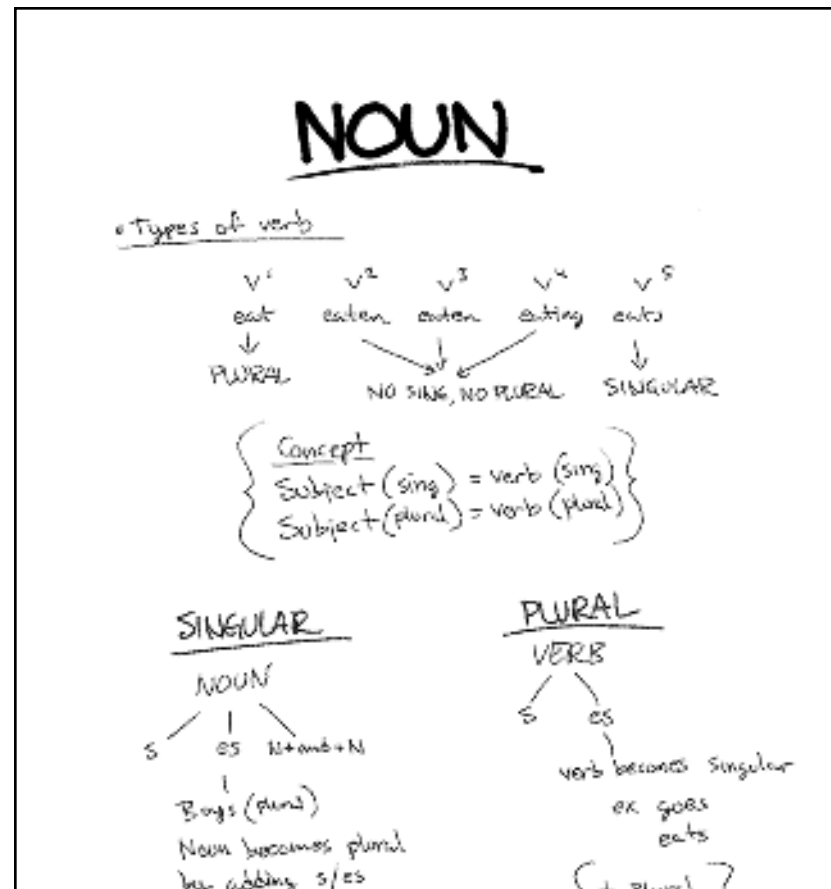 NOUN
• Types of verb
V¹ V² V³ V⁴ V⁵
eat eaten eaten eating eats
PLURAL NO SING, NO PLURAL SINGULAR
Concept
Subject (sing) = verb (sing)
Subject (plural) = verb (plural)
SINGULAR
NOUN
s es N+and+N
Boys (plural)
Noun becomes plural
by adding s/es
PLURAL
VERB
s es
verb becomes singular
ex goes
eats
Plural